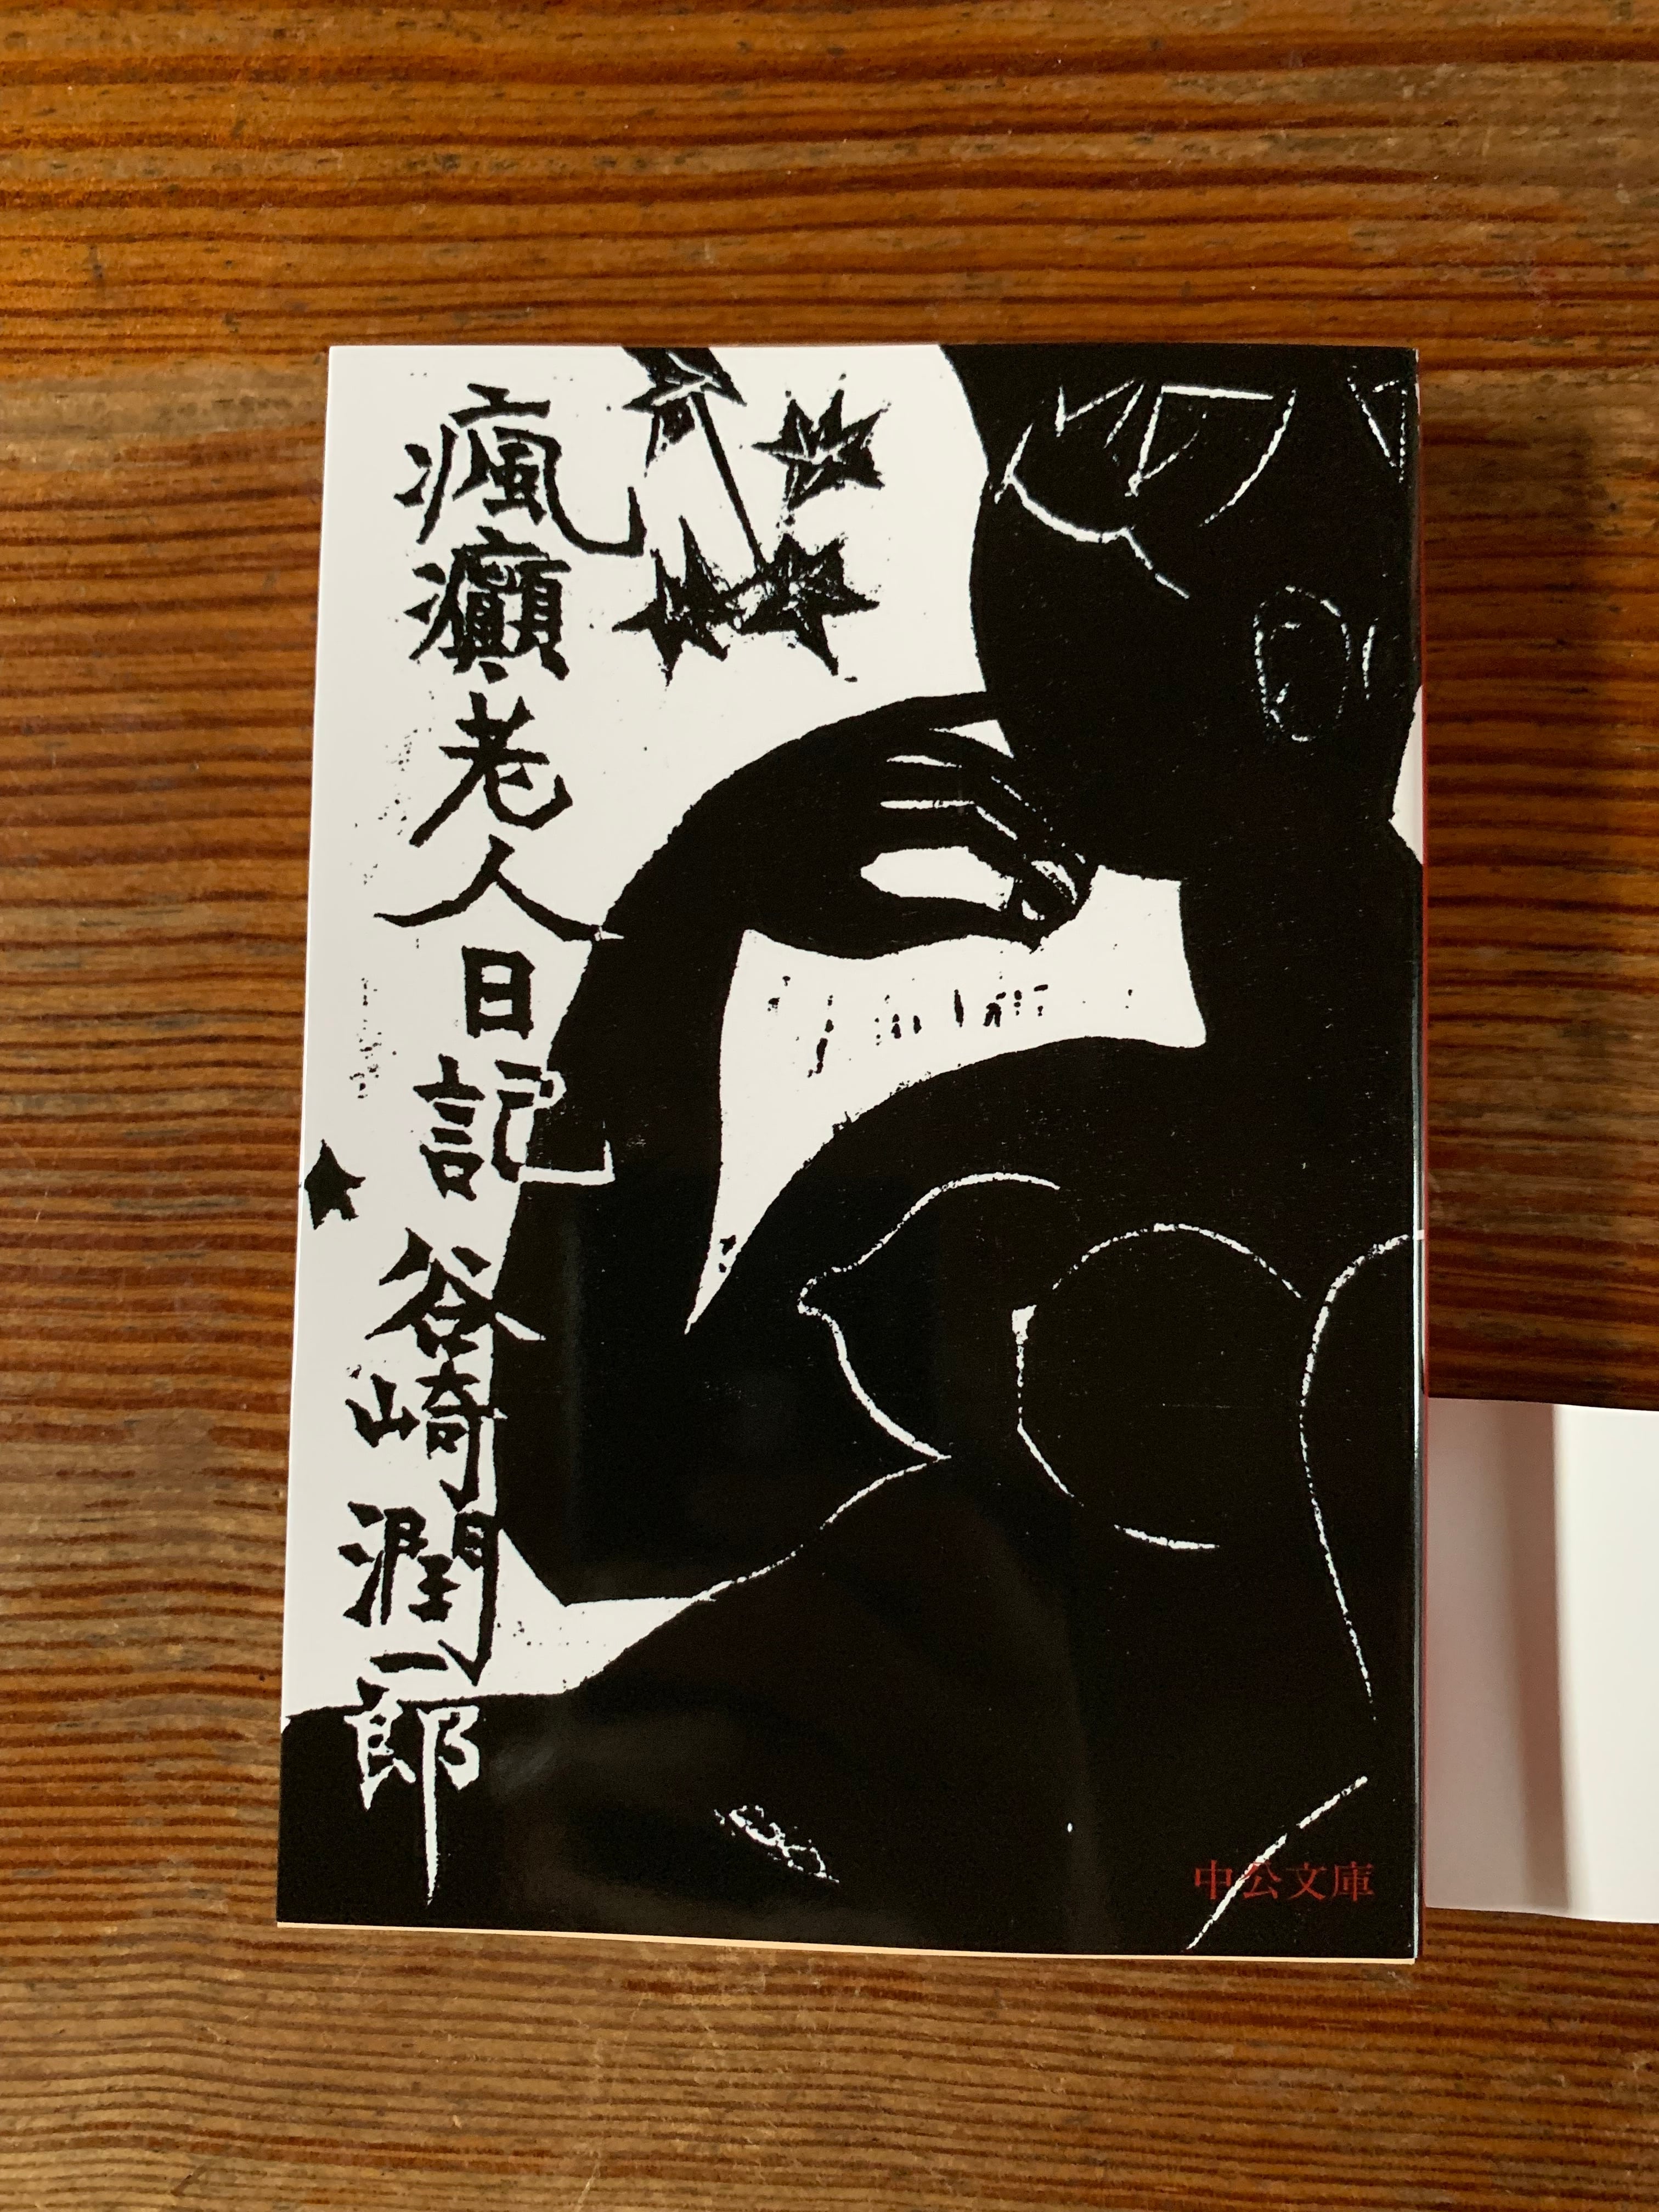 瘋癲老人日記
谷崎潤一郎
中公文庫